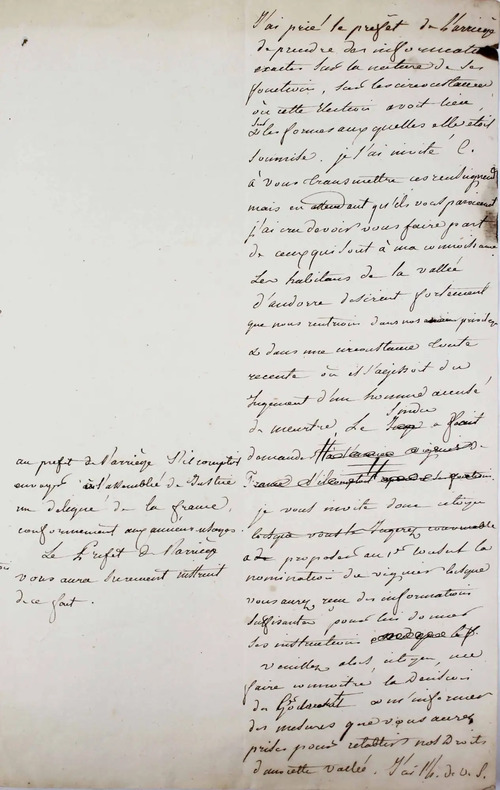 J'ai prié le préfet de l'arriège
de prendre des informations
exactes sur la nature de ses
fonctions, sur les circonstances
où cette Election avoit lieu,
sur
& les formes auxquelles elle étoit
soumise. je l'ai invité C.
à vous transmettre ces renseignemens
mais en attendant qu'ils vous parviennent
j'ai cru devoir vous faire part
de ceux qui sont à ma connoissance
Les habitans de la vallée
d'andorre desirent fortement
que nous rentrions dans nos privileges
& dans une circonstance toute
recente où il s'agissoit du
Jugement d'un homme accusé
de meurtre, Le Sindic a fait
demander
France s'il
au prefet de l'arriège s'il comptoit
envoyer à l'assemblée de Justice
un delegué de la france,
conformement aux anciens usages.
Le Préfet de l'arriège
vous aura surement instruit
de ce fait.
je vous invite donc citoyen
lorsque vous le Jugerez convenable
à proposer au 1er Consul la
nomination du viguier lorsque
vous aurez reçu des informations
suffisantes pour lui donner
ses instructions
veuillez alors, citoyen, me
faire connoitre la Décision
du & m'informer
des mesures que vous aurez
prises pour rétablir nos Droits
dans cette vallée. J'ai l'h. de v. S.